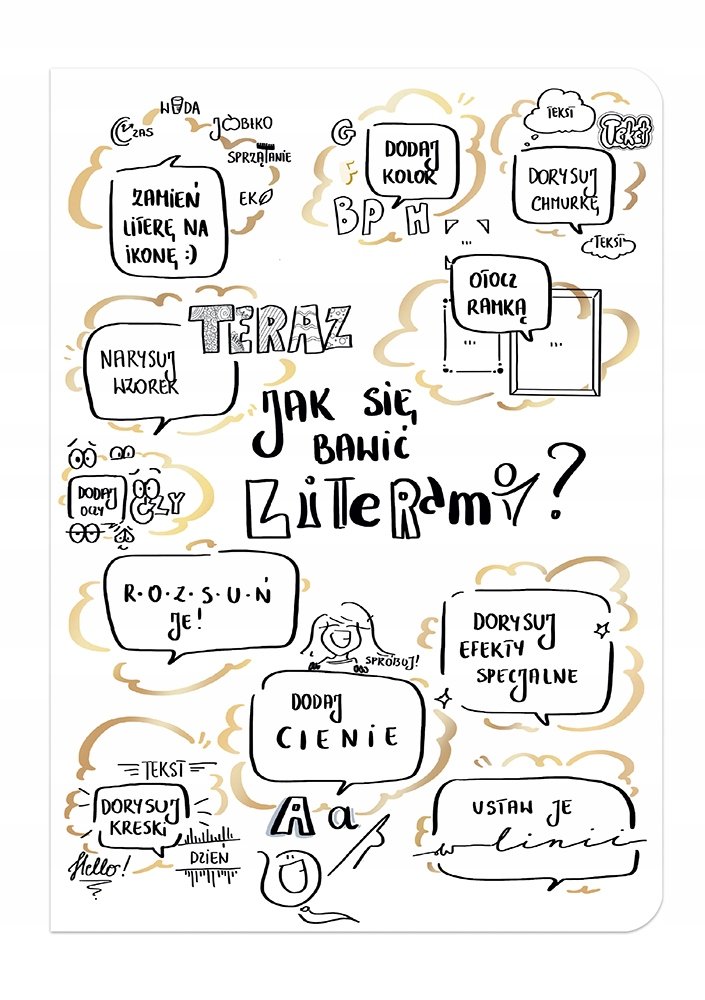 WODA
CZAS
JABŁKO
SPRZĄTANIE
EKO
ZAMIEŃ
LITERĘ NA
IKONĘ :)
G
F
DODAJ
KOLOR
B P H
TEKST
Tekst
DORYSUJ
CHMURKĘ
TEKST
OTOCZ
RAMKĄ
TERAZ
NARYSUJ
WZOREK
JAK SIĘ
BAWIĆ
LITERAMI?
DODAJ
OCZY
OCZY
R·O·Z·S·U·Ń
JE!
SPRÓBUJ!
DORYSUJ
EFEKTY
SPECJALNE
DODAJ
CIENIE
TEKST
DORYSUJ
KRESKI
Hello!
DZIEŃ
A a
USTAW JE
w linii